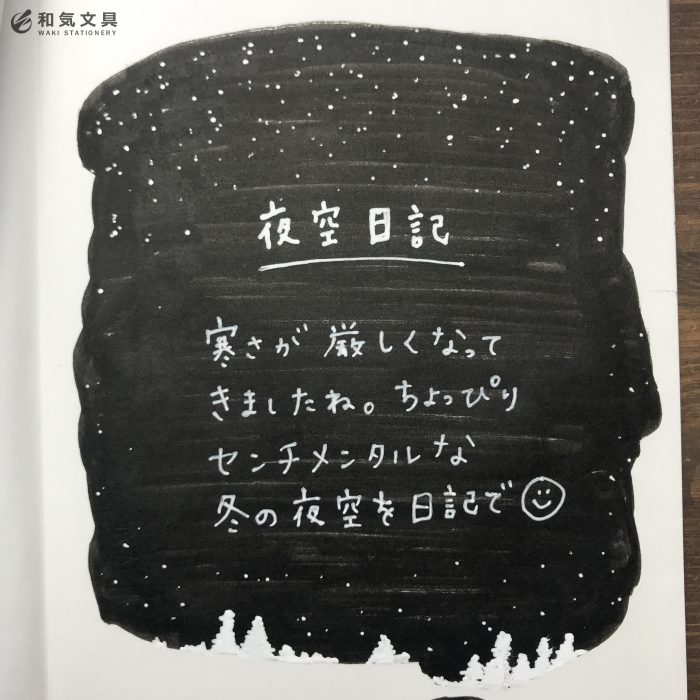 和気文具
WAKI STATIONERY
夜空日記
寒さが厳しくなって
きましたね。ちょっぴり
センチメンタルな
冬の夜空を日記で